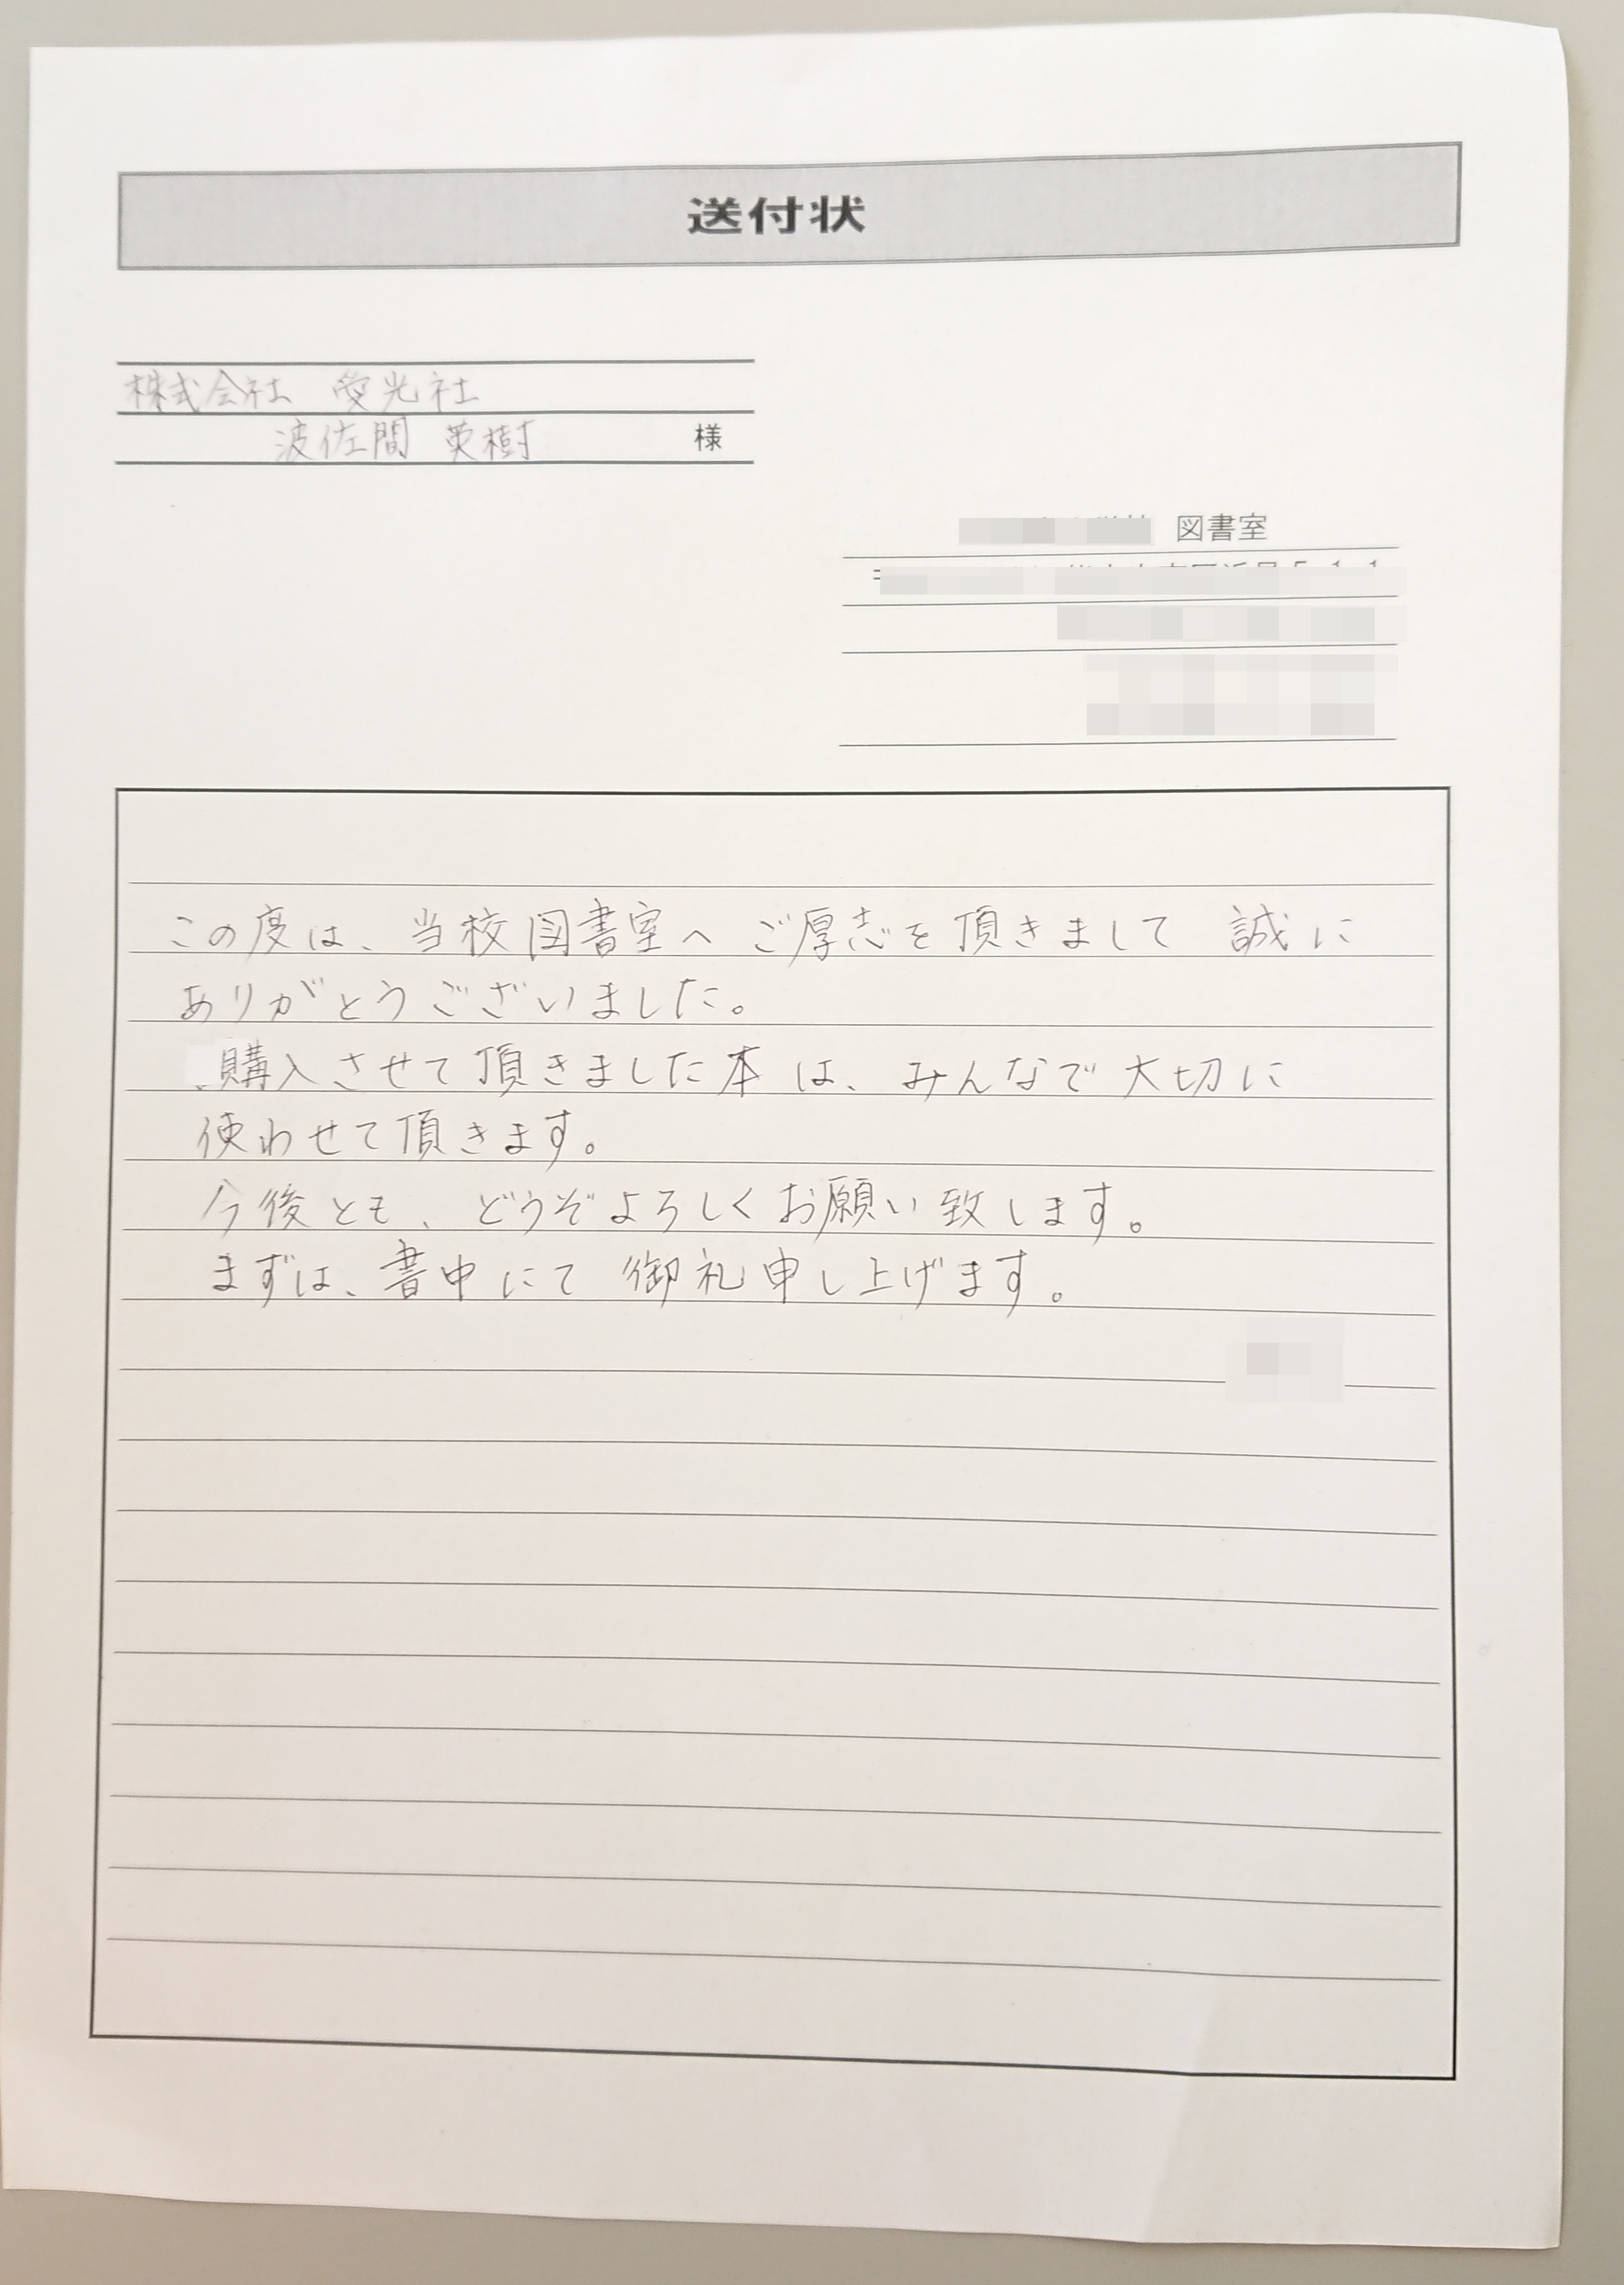 送付状
株式会社 愛光社
波佐間 英樹 様
図書室
この度は、当校図書室へ ご厚志を頂きまして 誠に
ありがとうございました。
購入させて頂きました本 は、みんなで大切に
使わせて頂きます。
今後とも、どうぞよろしくお願い致します。
まずは、書中にて 御礼申し上げます。